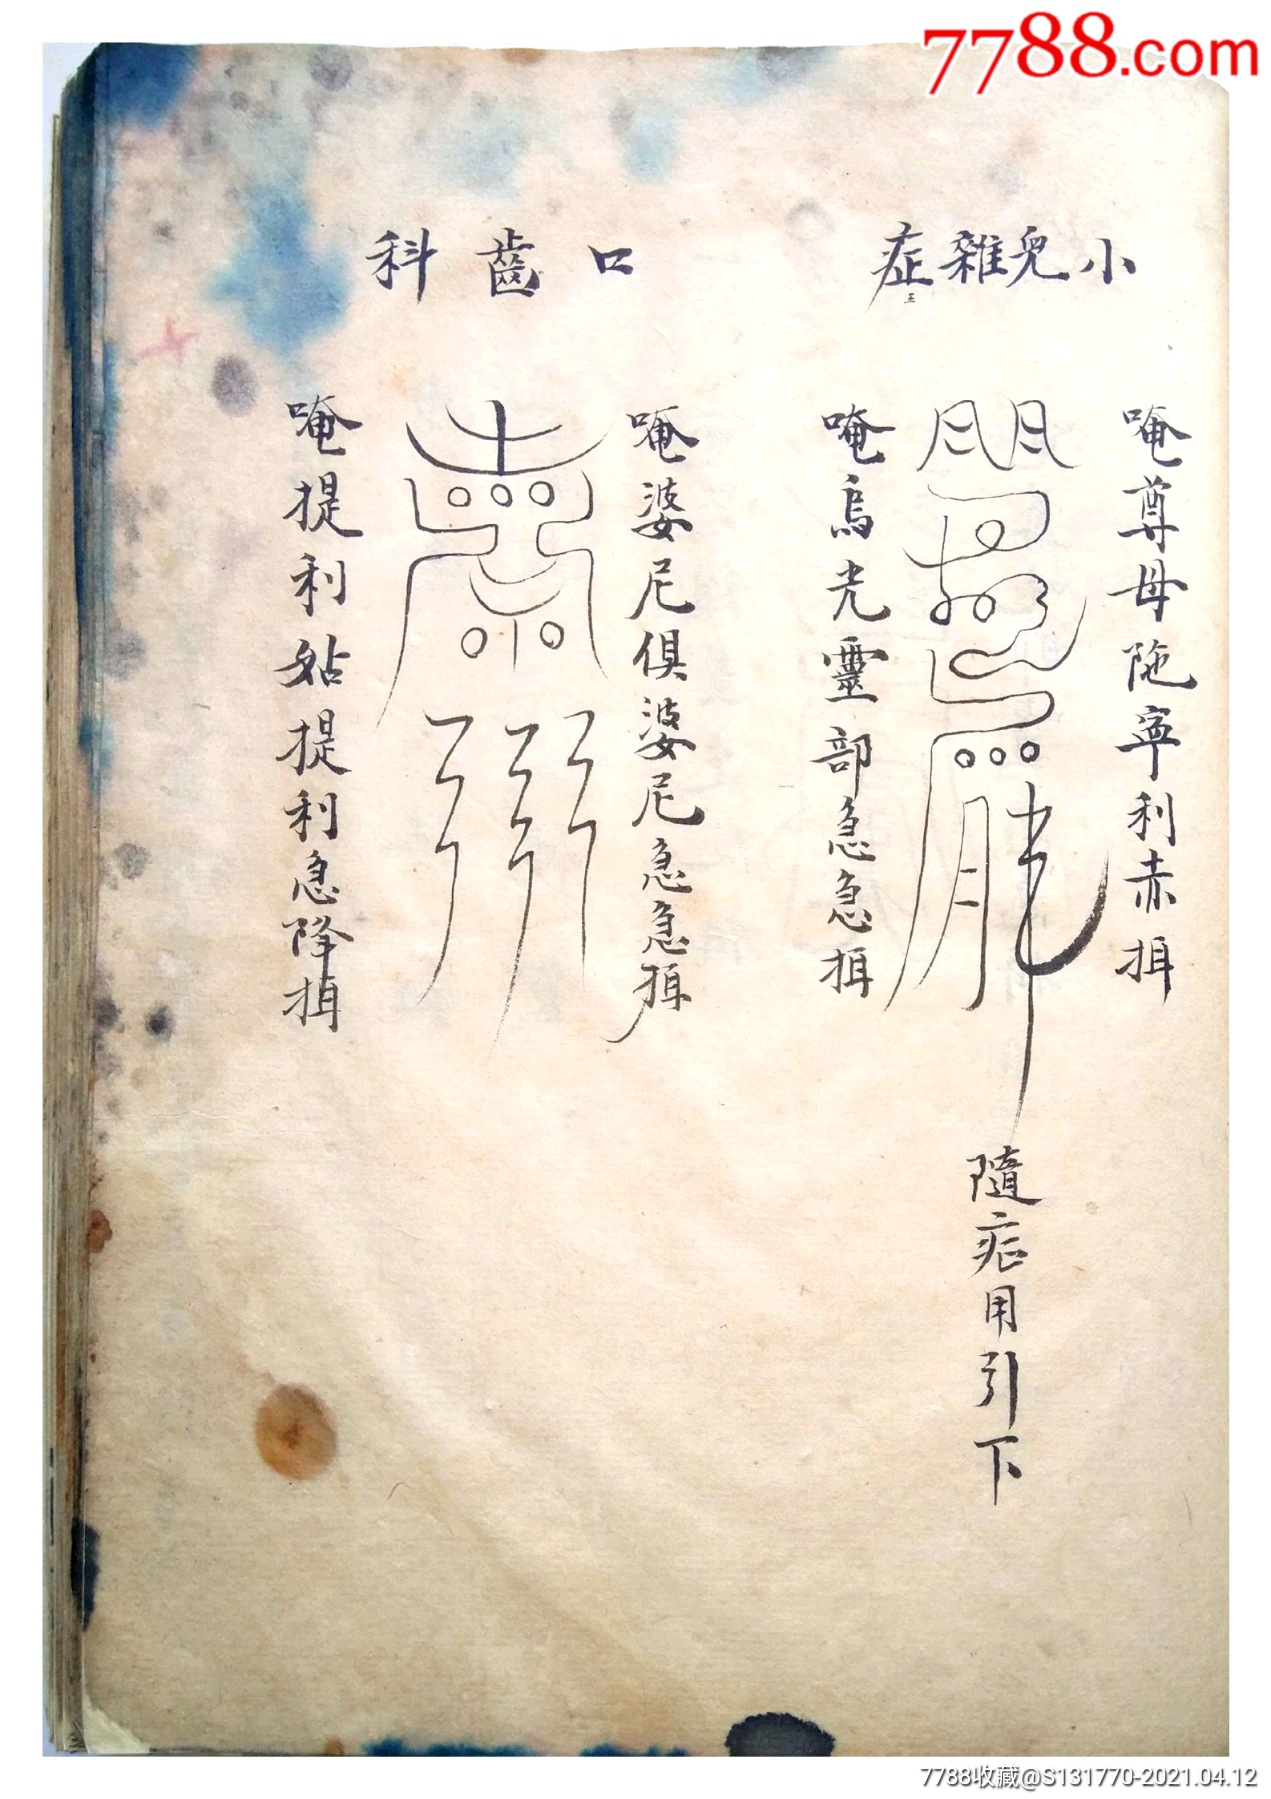 7788.com
小兒雜症
唵尊母陁寧利赤揖
唵烏光靈部急急揖
隨症用引下
口齒科
唵婆尼俱婆尼急急揖
唵提利姑提利急降揖
7788收藏@S131770-2021.04.12